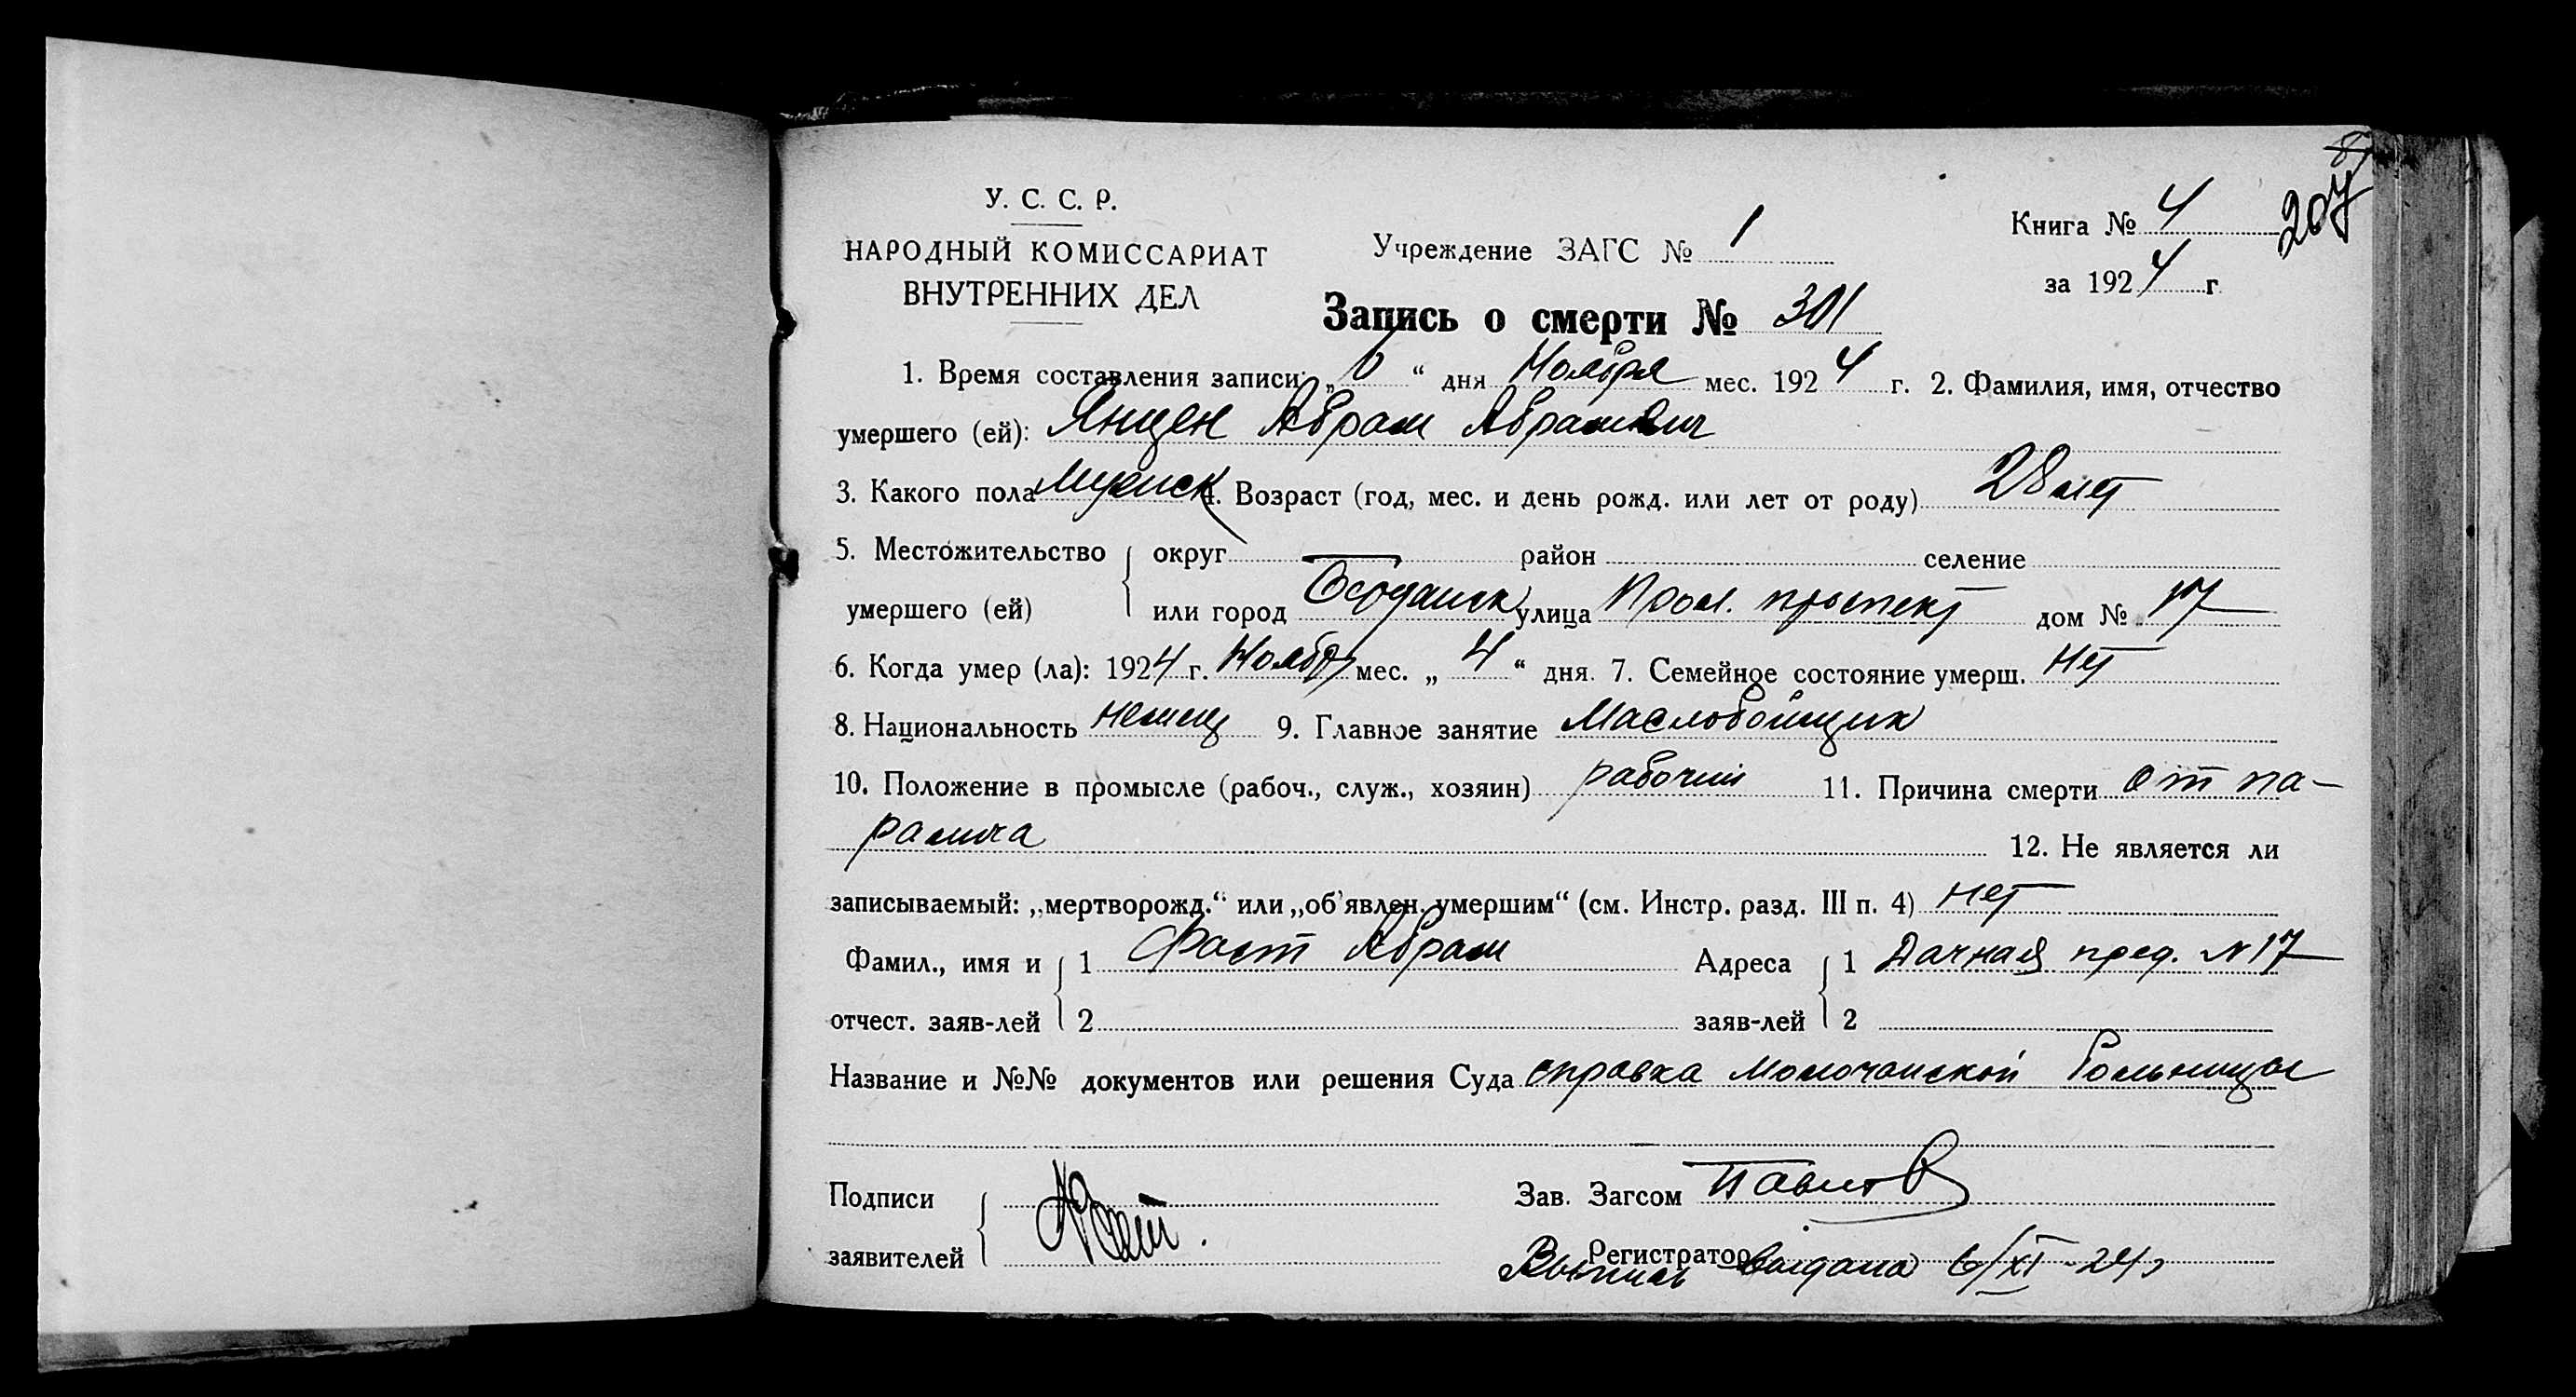 207
У. С. С. Р.
НАРОДНЫЙ КОМИССАРИАТ
ВНУТРЕННИХ ДЕЛ
Учреждение ЗАГС № 1
Книга № 4
за 1924 г
Запись о смерти № 301
1. Время составления записи: „6“ дня Ноября мес. 1924 г. 2. Фамилия, имя, отчество
умершего (ей): Янцен Абрам Абрамович
3. Какого пола мужск 4. Возраст (год, мес. и день рожд. или лет от роду) 28 лет
5. Местожительство округ район селение
умершего (ей) или город Бердянск улица Прол. проспект дом № 17
6. Когда умер (ла): 1924 г. Ноябр мес. „4“ дня. 7. Семейное состояние умерш. нет
8. Национальность немец 9. Главное занятие Маслобойщик
10. Положение в промысле (рабоч., служ., хозяин) рабочий 11. Причина смерти от па-
ралича 12. Не является ли
записываемый: „мертворожд.“ или „об'явлен. умершим“ (см. Инстр. разд. III п. 4) нет
Фамил., имя и 1 Фаст Абрам Адреса 1 Дачная пред. N 17
отчест. заяв-лей 2 заяв-лей 2
Название и №№ документов или решения Суда справка Молочанской больницы
Подписи Зав. Загсом Павлов
заявителей АФаст. Регистратор
Выпись выдана 6/XI-24 г